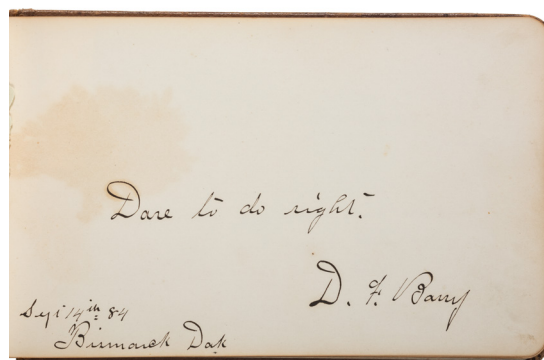 Dare to do right.
D. F. Barry
Sept 14th 84
Bismarck Dak